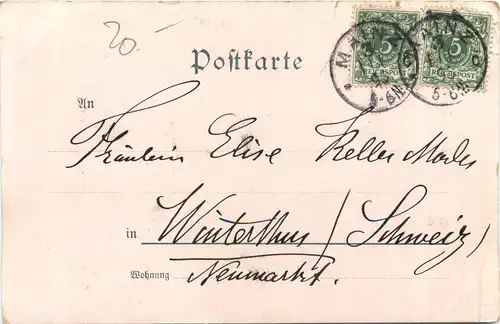 20.-
Postkarte
MAINZ
5
REICHSPOST
5-6N
MAINZ
5
REICHSPOST
5-6N
An
Fräulein Elise Keller Modes
in Winterthur / Schweiz /
Wohnung Neumarkt.